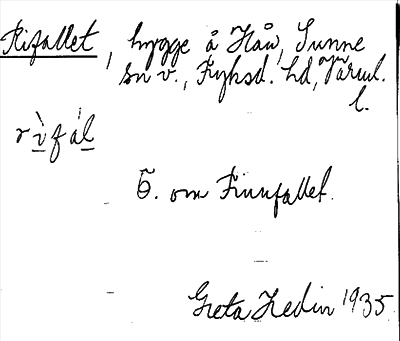 Rifallet, bygge å Hån, Sunne
sn v., Fryksd. hd, Värml.
l.
rìfál
Ö. om Finnfallet.
Greta Hedin 1935.